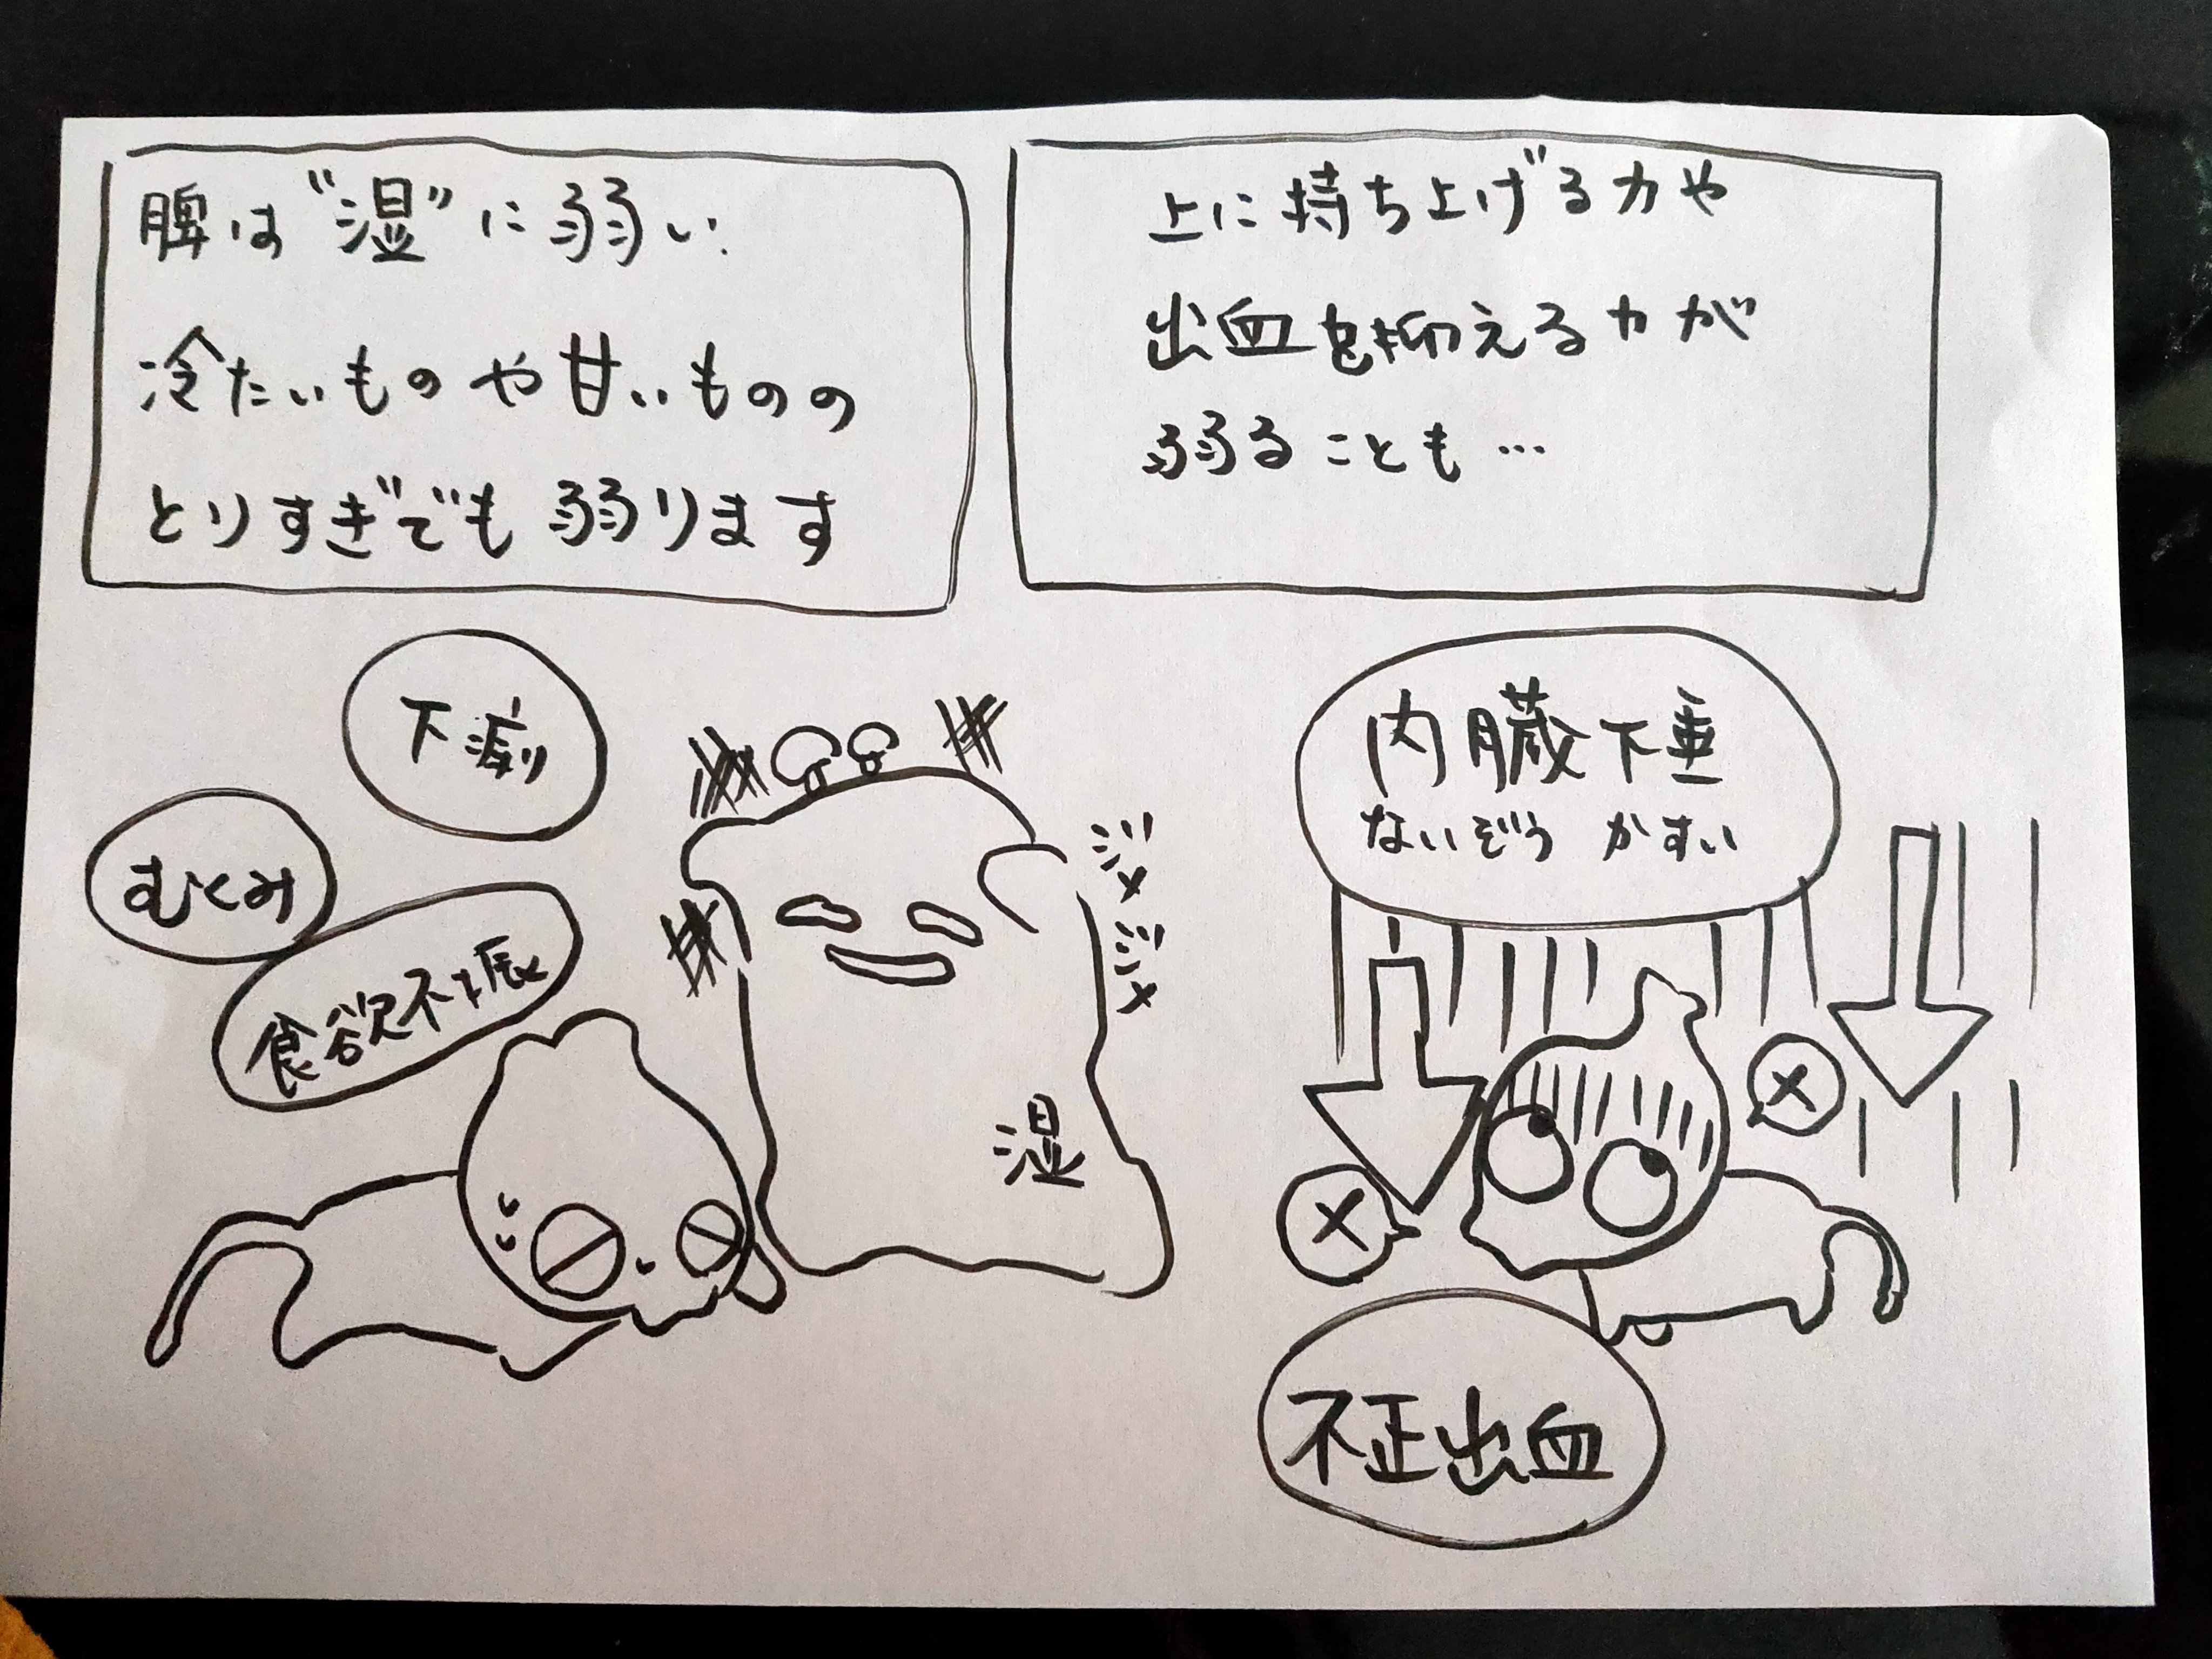 脾は“湿”に弱い
冷たいものや甘いものの
とりすぎでも弱ります
上に持ち上げる力や
出血を抑える力が
弱ることも…
下痢
むくみ
食欲不振
湿
内臓下垂
ないぞう かすい
不正出血